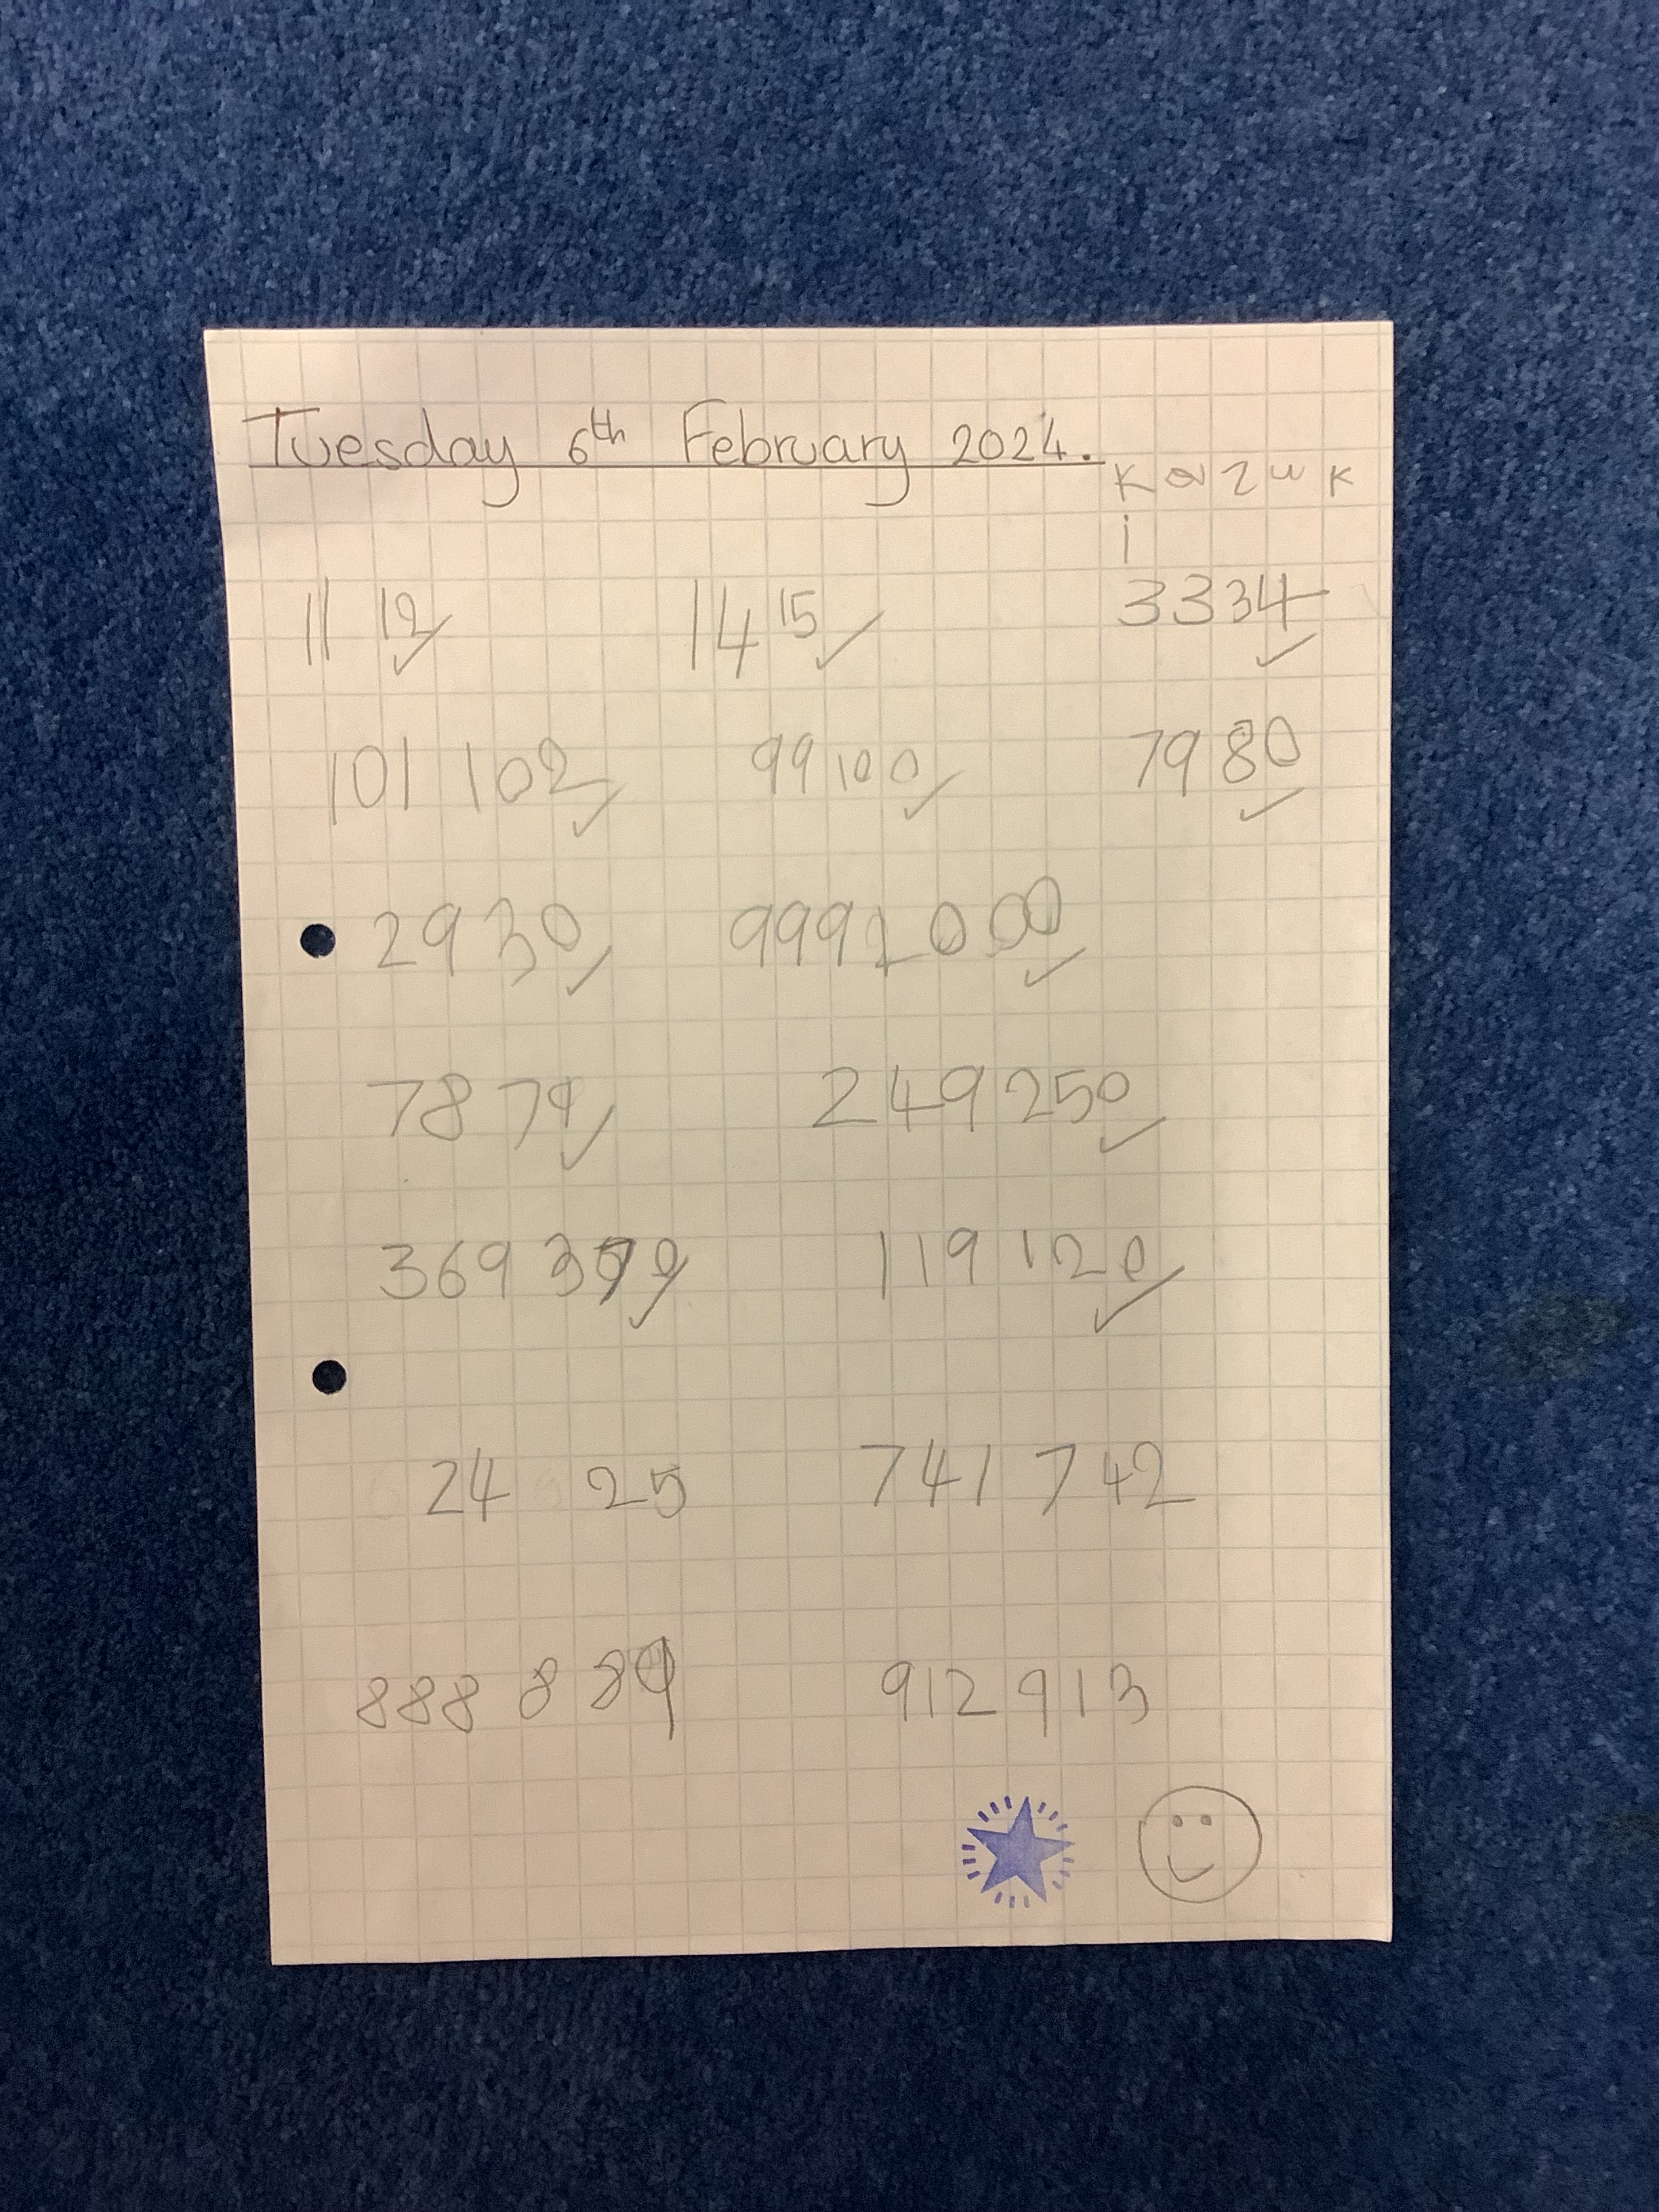 Tuesday 6th February 2024.
Kazuk
i
11 12 14 15 33 34
101 102 99 100 79 80
29 30 999 1000
78 79 249 250
369 370 119 120
24 25 741 742
888 889 912 913